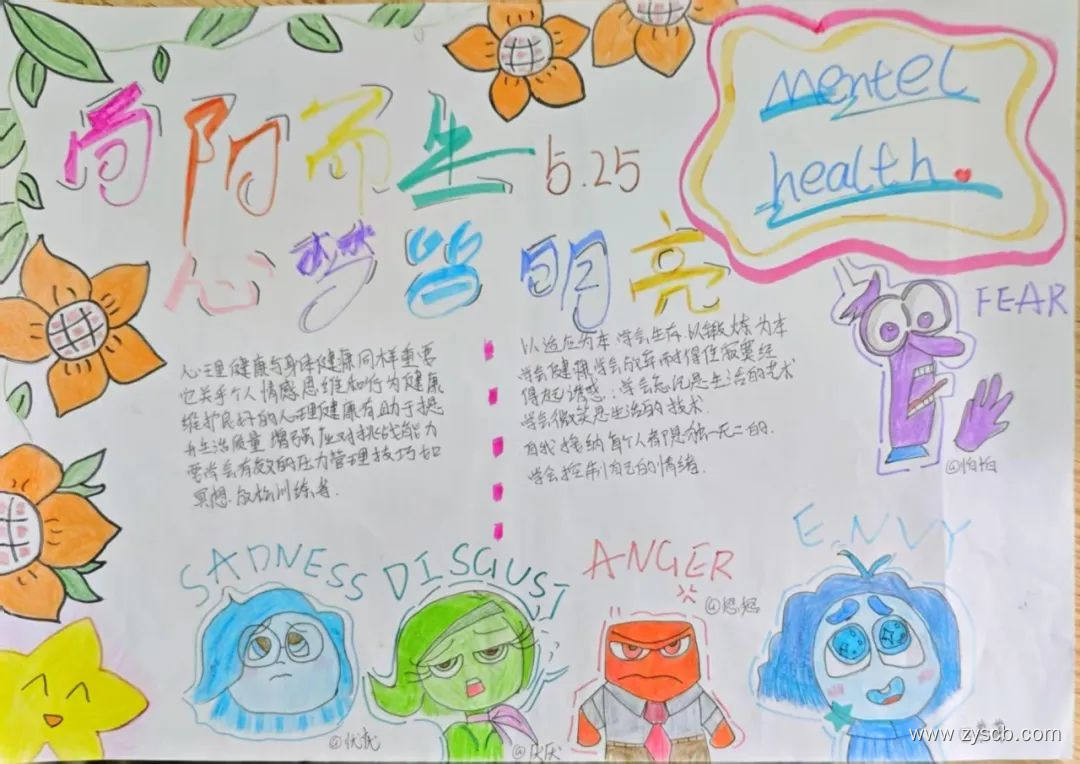 向阳而生 5.25
mentel
health
心梦留明亮
FEAR
@怕怕
心理健康与身体健康同样重要
它关乎个人情感思维和行为健康
维护良好的心理健康有助于提
升生活质量 增强应对挑战能力
要学会有效的压力管理技巧如
冥想.放松训练等.
以适应为本 学会生存.以锻炼为本
学会健
得起诱惑;学会忘记是生活的艺术
学会微笑是生活的技术.
自我接纳每个人都是独一无二的.
学会控制自己的情绪.
SADNESS
DISGUST
ANGER
ENVY
@忧忧
@厌厌
@怒怒
www.zyscb.com